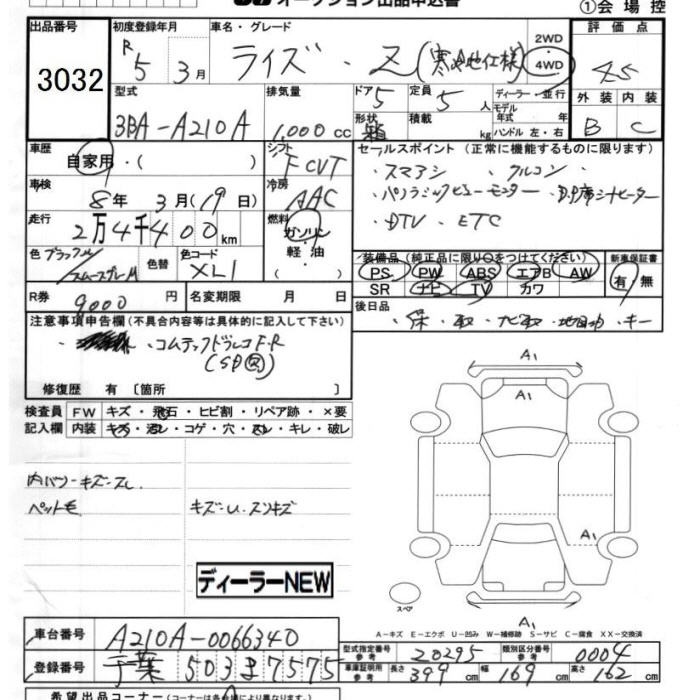 オークション出品申込書
①会場控
出品番号 3032
初度登録年月 R5 3月
車名・グレード ライズ・Z(寒冷地仕様)
2WD
4WD
評価点 4.5
型式 3BA-A210A
排気量 1,000cc
ドア 5
形状 箱
定員 5人
積載 kg
ディーラー・並行
モデル年式 年
ハンドル 左・右
外装 B
内装 C
車歴 自家用・( )
シフト FCVT
セールスポイント (正常に機能するものに限ります)
・スマアシ ・クルコン
・パノラミックビューモニター ・D,P席シートヒーター
・DTV ・ETC
車検 8年 3月(19日)
冷房 AAC
走行 2万4千400km
燃料 ガソリン
軽・油
色 ブラックM/スムースグレーM
色替
色コード XL1
装備品(純正品に限り○をつけてください)
新車保証書
PS PW ABS エアB AW
有 無
SR ナビ TV カワ
R券 9000円
名変期限 月 日
後日品
・保・取・ナビ取・地図・キー
注意事項申告欄(不具合内容等は具体的に記入して下さい)
・コムテックドラレコF.R
(SD欠)
修復歴 有〔箇所 〕
検査員 FW キズ・飛石・ヒビ割・リペア跡・×要
記入欄 内装 キズ・汚レ・コゲ・穴・スレ・キレ・破レ
内パリーキズ・スレ
ペット毛
キズ・U・スリキズ
ディーラーNEW
A1
A1
A1
スペア
A-キズ E-エクボ U-凹み W-補修跡 S-サビ C-腐食 XX-交換済
車台番号 A210A-0066340
登録番号 千葉 503 ま 7575
型式指定番号参考 20295
類別区分番号参考 0004
車庫証明用参考 長さ 399cm 幅 169cm 高さ 162cm
希望出品コーナー(コーナーは各会場により異なります。)